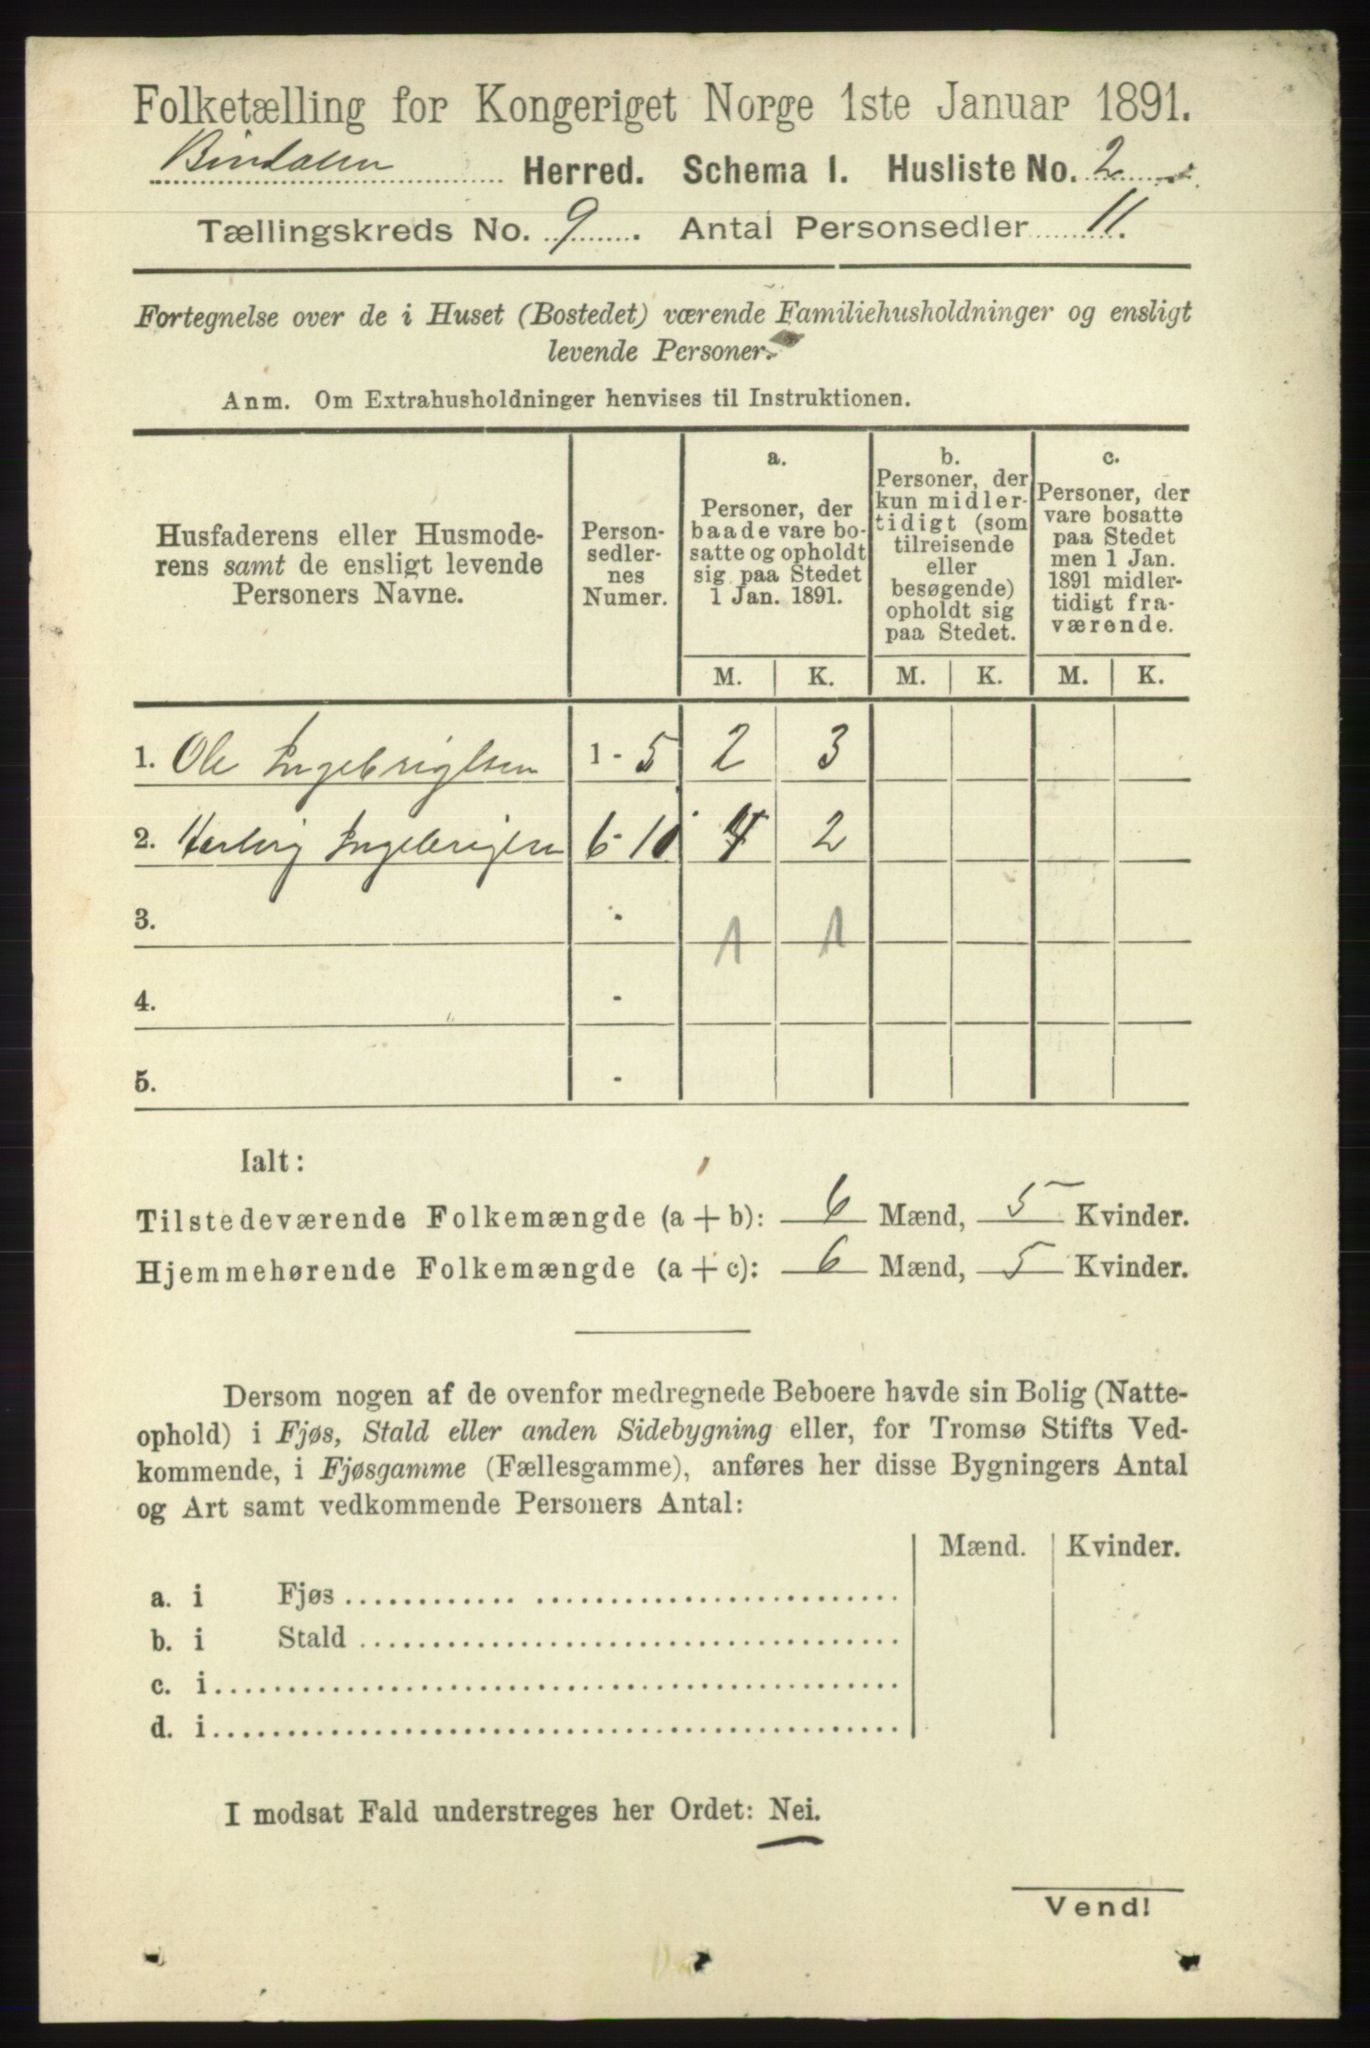 Folketælling for Kongeriget Norge 1ste Januar 1891.
Bindalen Herred. Schema 1. Husliste No. 2
Tællingskreds No. 9. Antal Personsedler 11.
Fortegnelse over de i Huset (Bostedet) værende Familiehusholdninger og ensligt
levende Personer.
Anm. Om Extrahusholdninger henvises til Instruktionen.
Husfaderens eller Husmode-
rens samt de ensligt levende
Personers Navne.
Person-
sedler-
nes
Numer.
a.
Personer, der
baade vare bo-
satte og opholdt
sig paa Stedet
1 Jan. 1891.
b.
Personer, der
kun midler-
tidigt (som
tilreisende
eller
besøgende)
opholdt sig
paa Stedet.
c.
Personer, der
vare bosatte
paa Stedet
men 1 Jan.
1891 midler-
tidigt fra-
værende.
M. K. M. K. M. K.
1. Ole Ingebrigtsen 1 - 5 2 3
2. Ingebrigtsen 6 - 10 4 2
3. - 1 1
4. -
5. -
Ialt:
Tilstedeværende Folkemængde (a + b): 6 Mænd, 5 Kvinder.
Hjemmehørende Folkemængde (a + c): 6 Mænd, 5 Kvinder.
Dersom nogen af de ovenfor medregnede Beboere havde sin Bolig (Natte-
ophold) i Fjøs, Stald eller anden Sidebygning eller, for Tromsø Stifts Ved-
kommende, i Fjøsgamme (Fællesgamme), anføres her disse Bygningers Antal
og Art samt vedkommende Personers Antal:
Mænd. Kvinder.
a. i Fjøs
b. i Stald
c. i
d. i
I modsat Fald understreges her Ordet: Nei.
Vend!